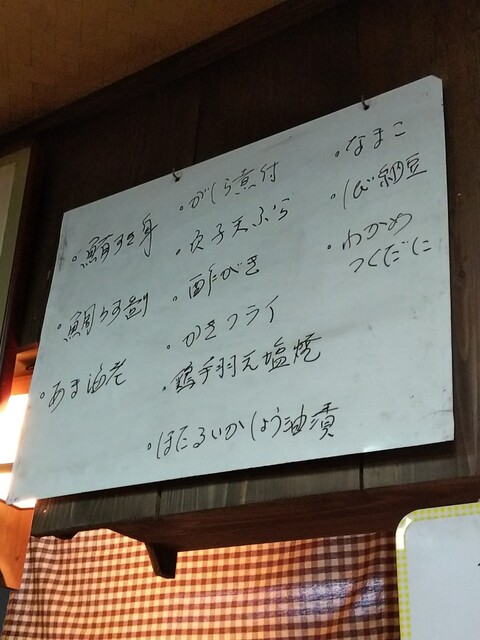 ・鮪すき身
・鯛うす造り
・あま海老
・がしら煮付
・穴子天ぷら
・酢がき
・かきフライ
・鶏手羽元塩焼
・ほたるいかしょう油漬
・なまこ
・いか納豆
・わかめ
つくだに